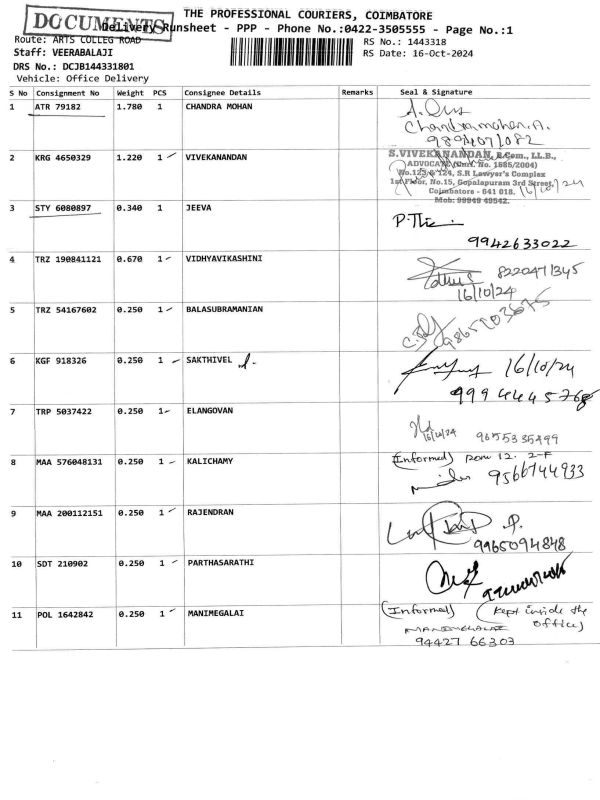 DOCUMENTS
THE PROFESSIONAL COURIERS, COIMBATORE
Delivery Runsheet - PPP - Phone No.:0422-3505555 - Page No.:1
Route: ARTS COLLEG ROAD
RS No.: 1443318
Staff: VEERABALAJI
RS Date: 16-Oct-2024
DRS No.: DCJB144331801
Vehicle: Office Delivery
S No Consignment No Weight PCS Consignee Details Remarks Seal & Signature
1 ATR 79182 1.780 1 CHANDRA MOHAN
Chandramohan.A.
9894071082
2 KRG 4650329 1.220 1 VIVEKANANDAN
S.VIVEKANANDAN, B.Com., LL.B.,
ADVOCATE (Enrl. No. 1885/2004)
No.123 & 124, S.R Lawyer's Complex
1st Floor, No.15, Gopalapuram 3rd Street,
Coimbatore - 641 018. 16/10/24
Mob: 99949 49542.
3 STY 6080897 0.340 1 JEEVA
9942633022
4 TRZ 190841121 0.670 1 VIDHYAVIKASHINI
8220471345
16/10/24
5 TRZ 54167602 0.250 1 BALASUBRAMANIAN
9865203675
6 KGF 918326 0.250 1 SAKTHIVEL
16/10/24
9994445768
7 TRP 5037422 0.250 1 ELANGOVAN
16/10/24 9655335499
8 MAA 576048131 0.250 1 KALICHAMY
(Informed)
9566744933
9 MAA 200112151 0.250 1 RAJENDRAN
9965094848
10 SDT 210902 0.250 1 PARTHASARATHI
11 POL 1642842 0.250 1 MANIMEGALAI
(Informed) (kept inside the
office)
94427 66303